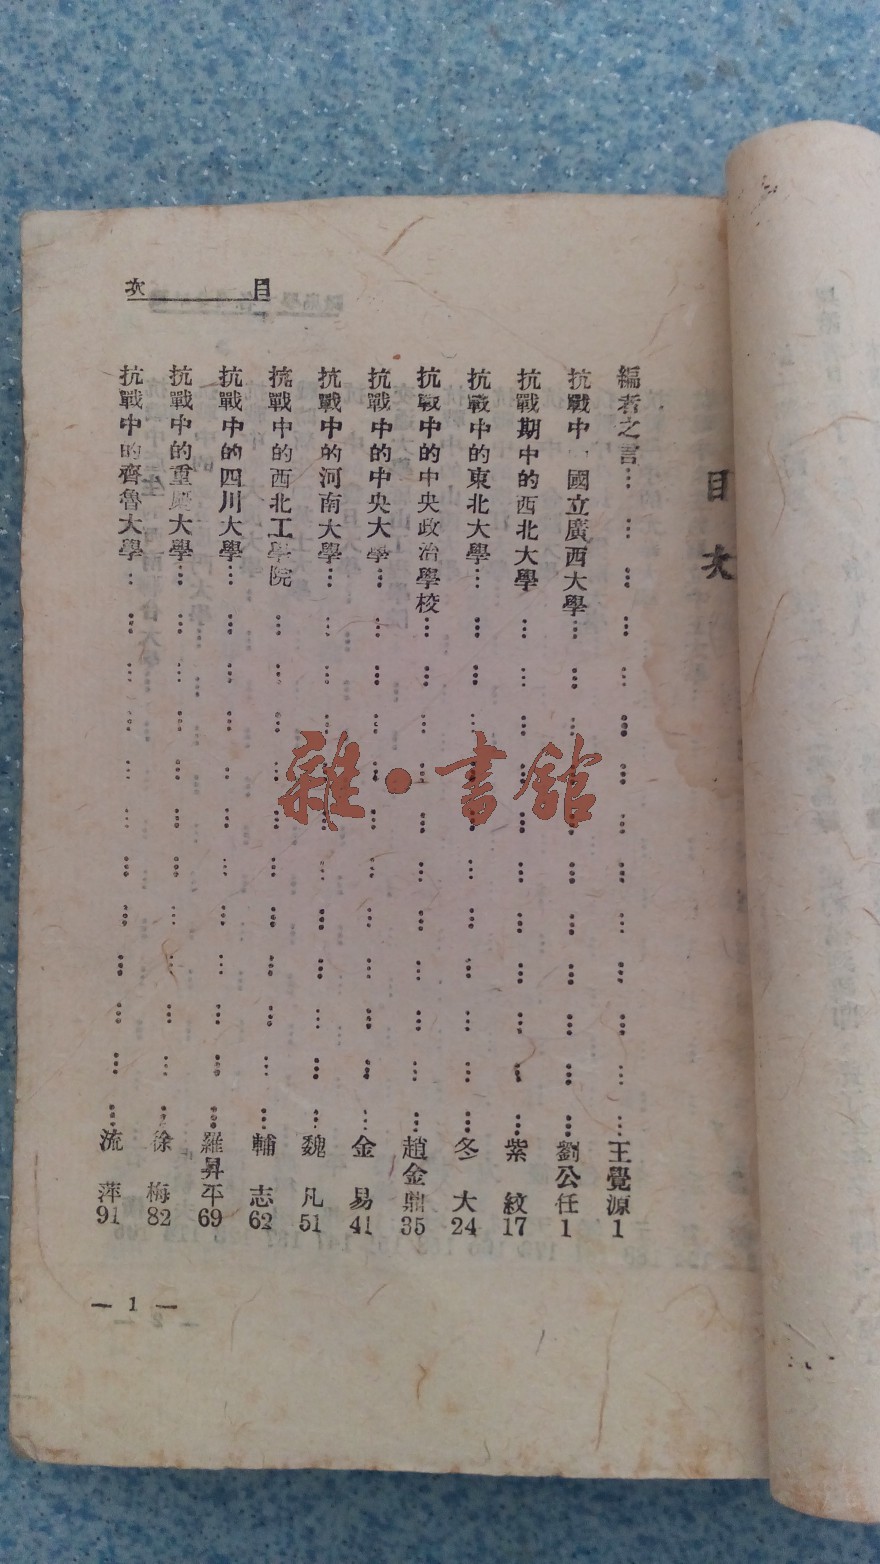 目次
目次
編者之言… … … … … … … … … … … … … …王覺源1
抗戰中國立廣西大學… … … … … … … … … … …劉公任1
抗戰期中的西北大學 … … … … … … … … … … …紫紋17
抗戰中的東北大學… … … … … … … … … … … …冬大24
抗戰中的中央政治學校… … … … … … … … … … …趙金鼎35
抗戰中的中央大學… … … … … … … … … … … …金易41
抗戰中的河南大學… … … … … … … … … … … …魏凡51
抗戰中的西北工學院 … … … … … … … … … … …輔志62
抗戰中的四川大學… … … … … … … … … … … …羅昇平69
抗戰中的重慶大學… … … … … … … … … … … …徐梅82
抗戰中的齊魯大學… … … … … … … … … … … …流萍91
— 1 —
雜·書館